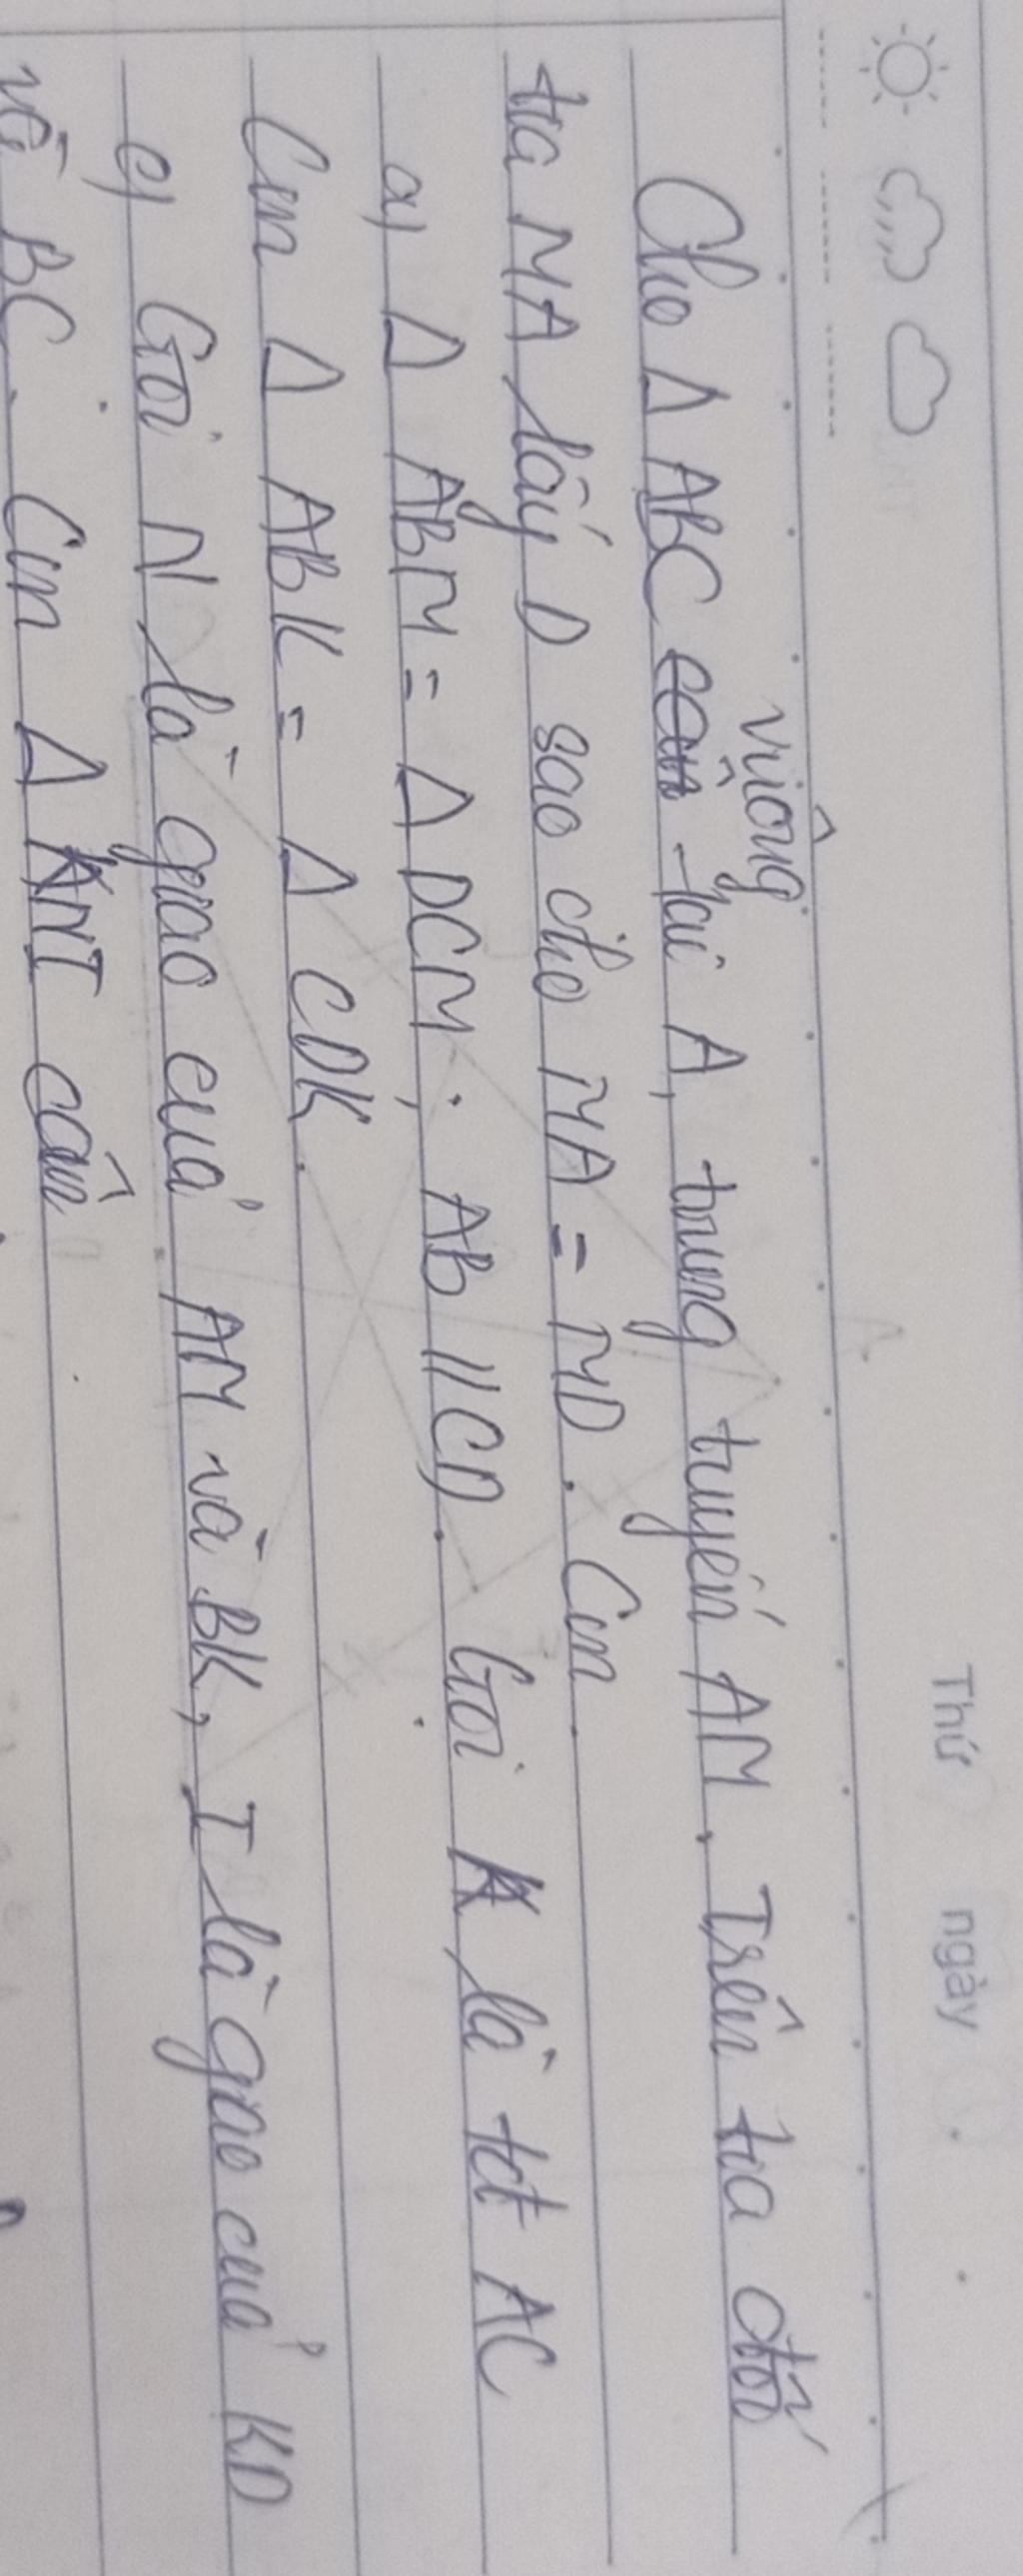 Thứ ngày
vuông
Cho Δ ABC cân tại A, trung tuyến AM. Trên tia đối
tia MA lấy D sao cho MA = MD. Cm
a) Δ ABM = Δ DCM; AB // CD. Gọi K là tđ AC
Cm Δ ABK = Δ CDK.
c) Gọi N là giao của AM và BK, I là giao của KD
và BC. Cm Δ KNI cân